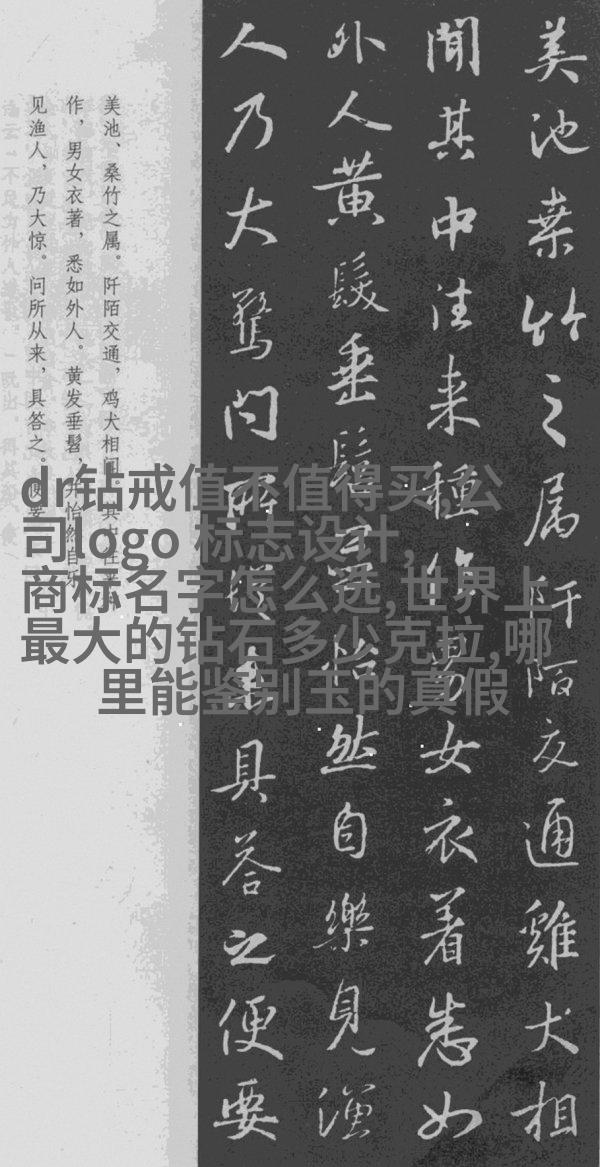 美池桑竹之属阡陌交通雞犬相
聞其中往来種作男女衣着悉如
外人黄髮垂髫並怡然自樂見漁
人乃大驚問所從来具答之便要
美池、桑竹之属。阡陌交通，鸡犬相闻。其中往来种
作，男女衣著，悉如外人。黄发垂髫，并怡然自乐。
见渔人，乃大惊。问所从来，具答之。便要
dr钻戒值不值得买,公
司logo 标志设计,
商标名字怎么选,世界上
最大的钻石多少克拉,哪
里能鉴别玉的真假